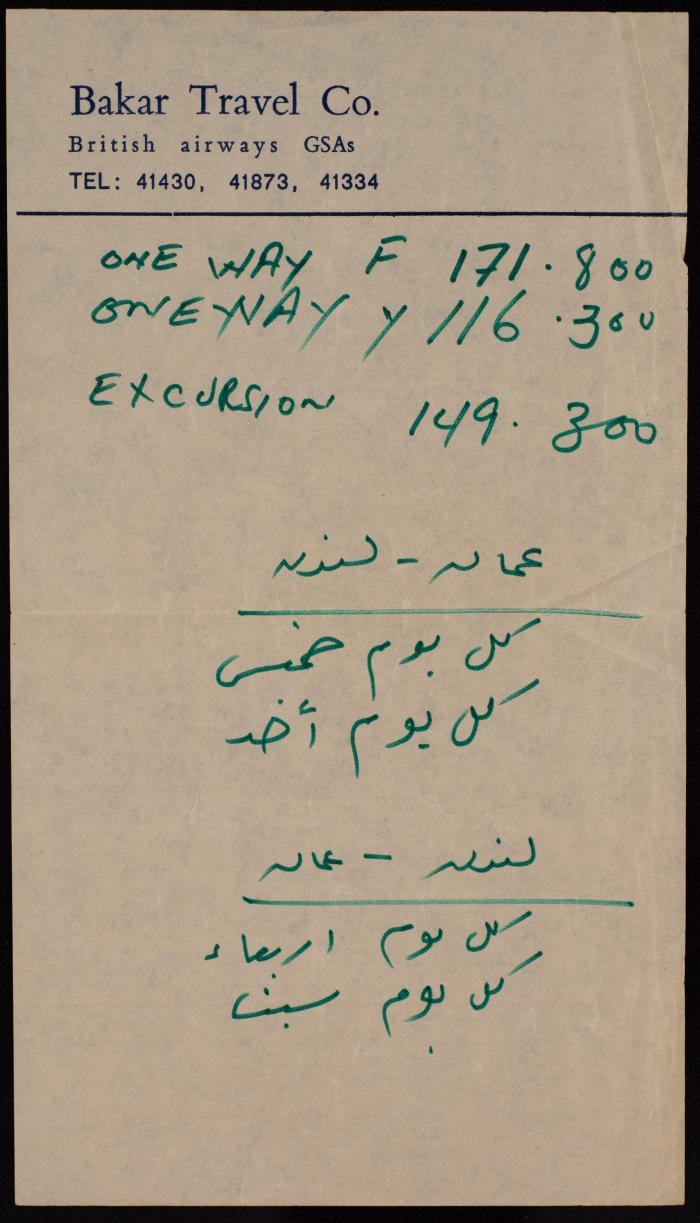 Bakar Travel Co.
British airways GSAs
TEL: 41430, 41873, 41334
ONE WAY F 171.800
ONE WAY Y 116.300
EXCURSION 149.300
عمان - لندن
كل يوم خميس
كل يوم أحد
لندن - عمان
كل يوم اربعاء
كل يوم سبت